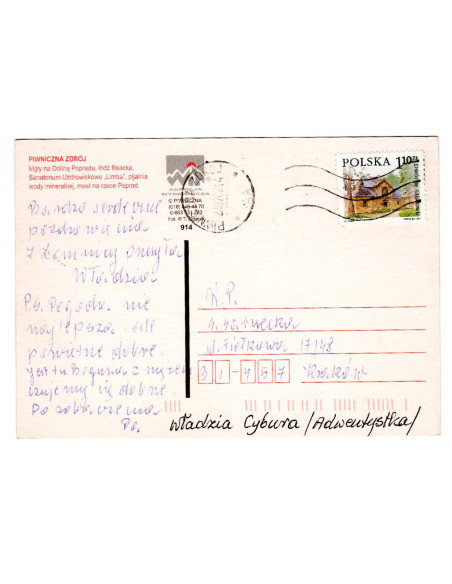 PIWNICZNA ZDRÓJ
Mgły na Doliną Popradu, łódź flisacka,
Sanatorium Uzdrowiskowe „Limba”, pijalnia
wody mineralnej, most na rzece Poprad.
© PIWNICZNA
914
POLSKA 1,10 ZŁ
Bardzo serdeczne
pozdrowienia
z Łomnicy przesyła
Władzia
P.S. Pogoda nie
najlepsza ale
powietrze dobre.
Jest tu Bogusia z mężem
czujemy się dobrze.
Do zobaczenia
Pa.
W.P.
ul. Fiołkowa 17/48
31-457 Kraków
Władzia Cybura /Adwentystka/